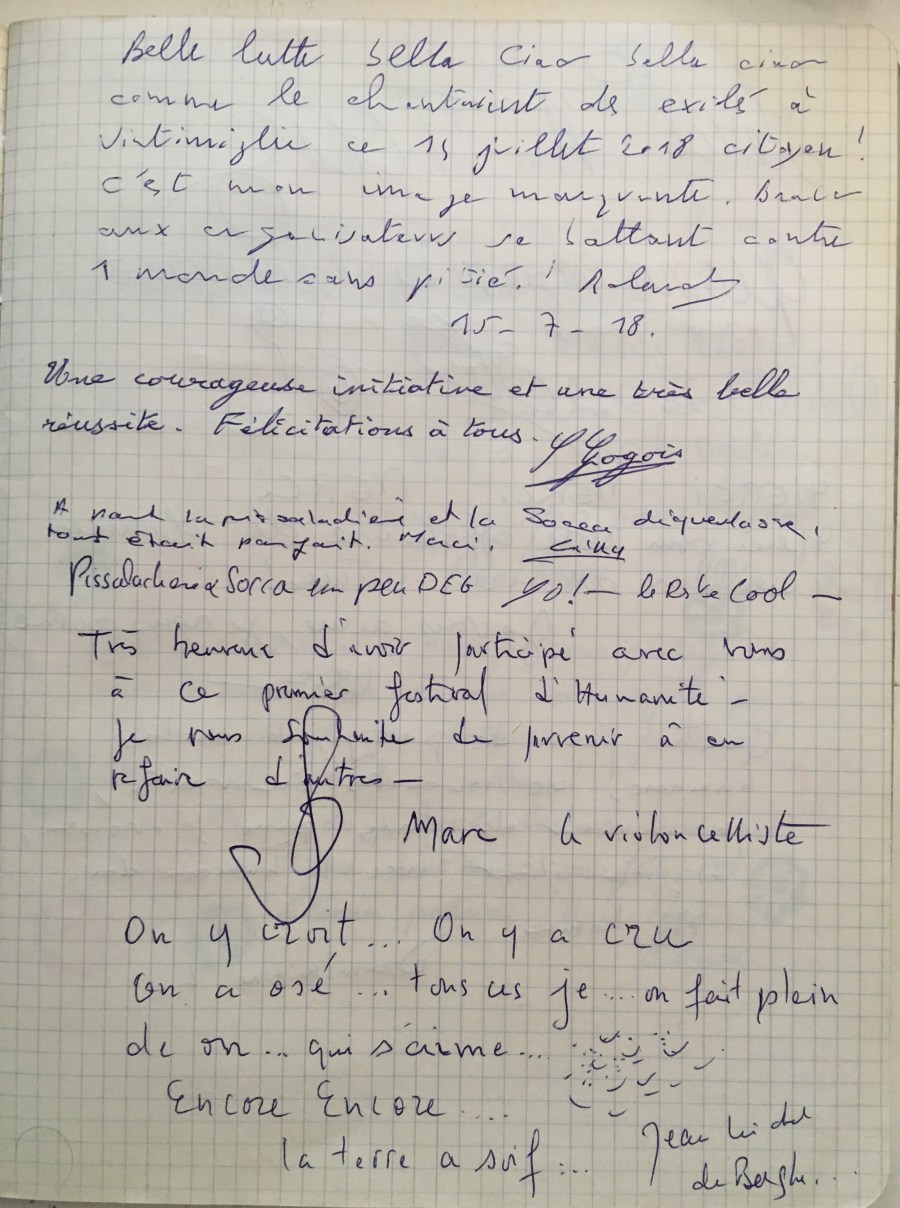 Belle lutte bella ciao bella ciao
comme le chantaient des exilés à
Vintimiglie ce 15 juillet 2018 citoyen !
c'est mon image marquante. Bravo
aux organisateurs se battant contre
1 monde sans pitié. ! Roland
15-7-18.
Une courageuse initiative et une très belle
réussite. Félicitations à tous. Gogois
A part la pissaladière et la Socca
tout était parfait. Merci.
Pissaladière & Socca un peu DEG Yo! – le Reste Cool –
Très heureux d'avoir participé avec vous
à ce premier festival d'Humanité –
Je vous souhaite de parvenir à en
refaire d'autres –
Marc le violoncelliste
On y croit... On y a cru
On a osé ... tous ces je ... on fait plein
de on... qui s'aime...
Encore Encore....
la terre a soif...
Jean Michel
de Berghe...